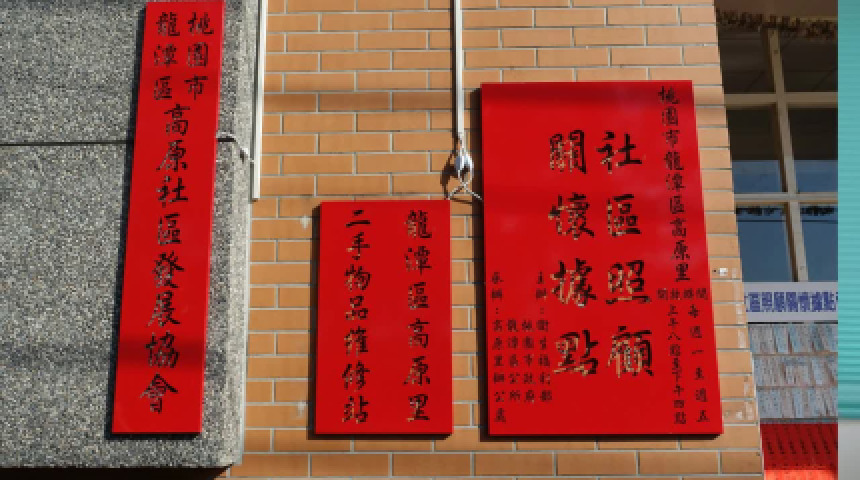 桃園市
龍潭區
高原社區發展協會
龍潭區高原里
二手物品維修站
桃園市龍潭區高原里
社區照顧
關懷據點
每週一至週五
上午八點至下午四點
主辦：衛生福利部
桃園市政府
龍潭區公所
承辦：高原里辦公處
區照顧關懷據點